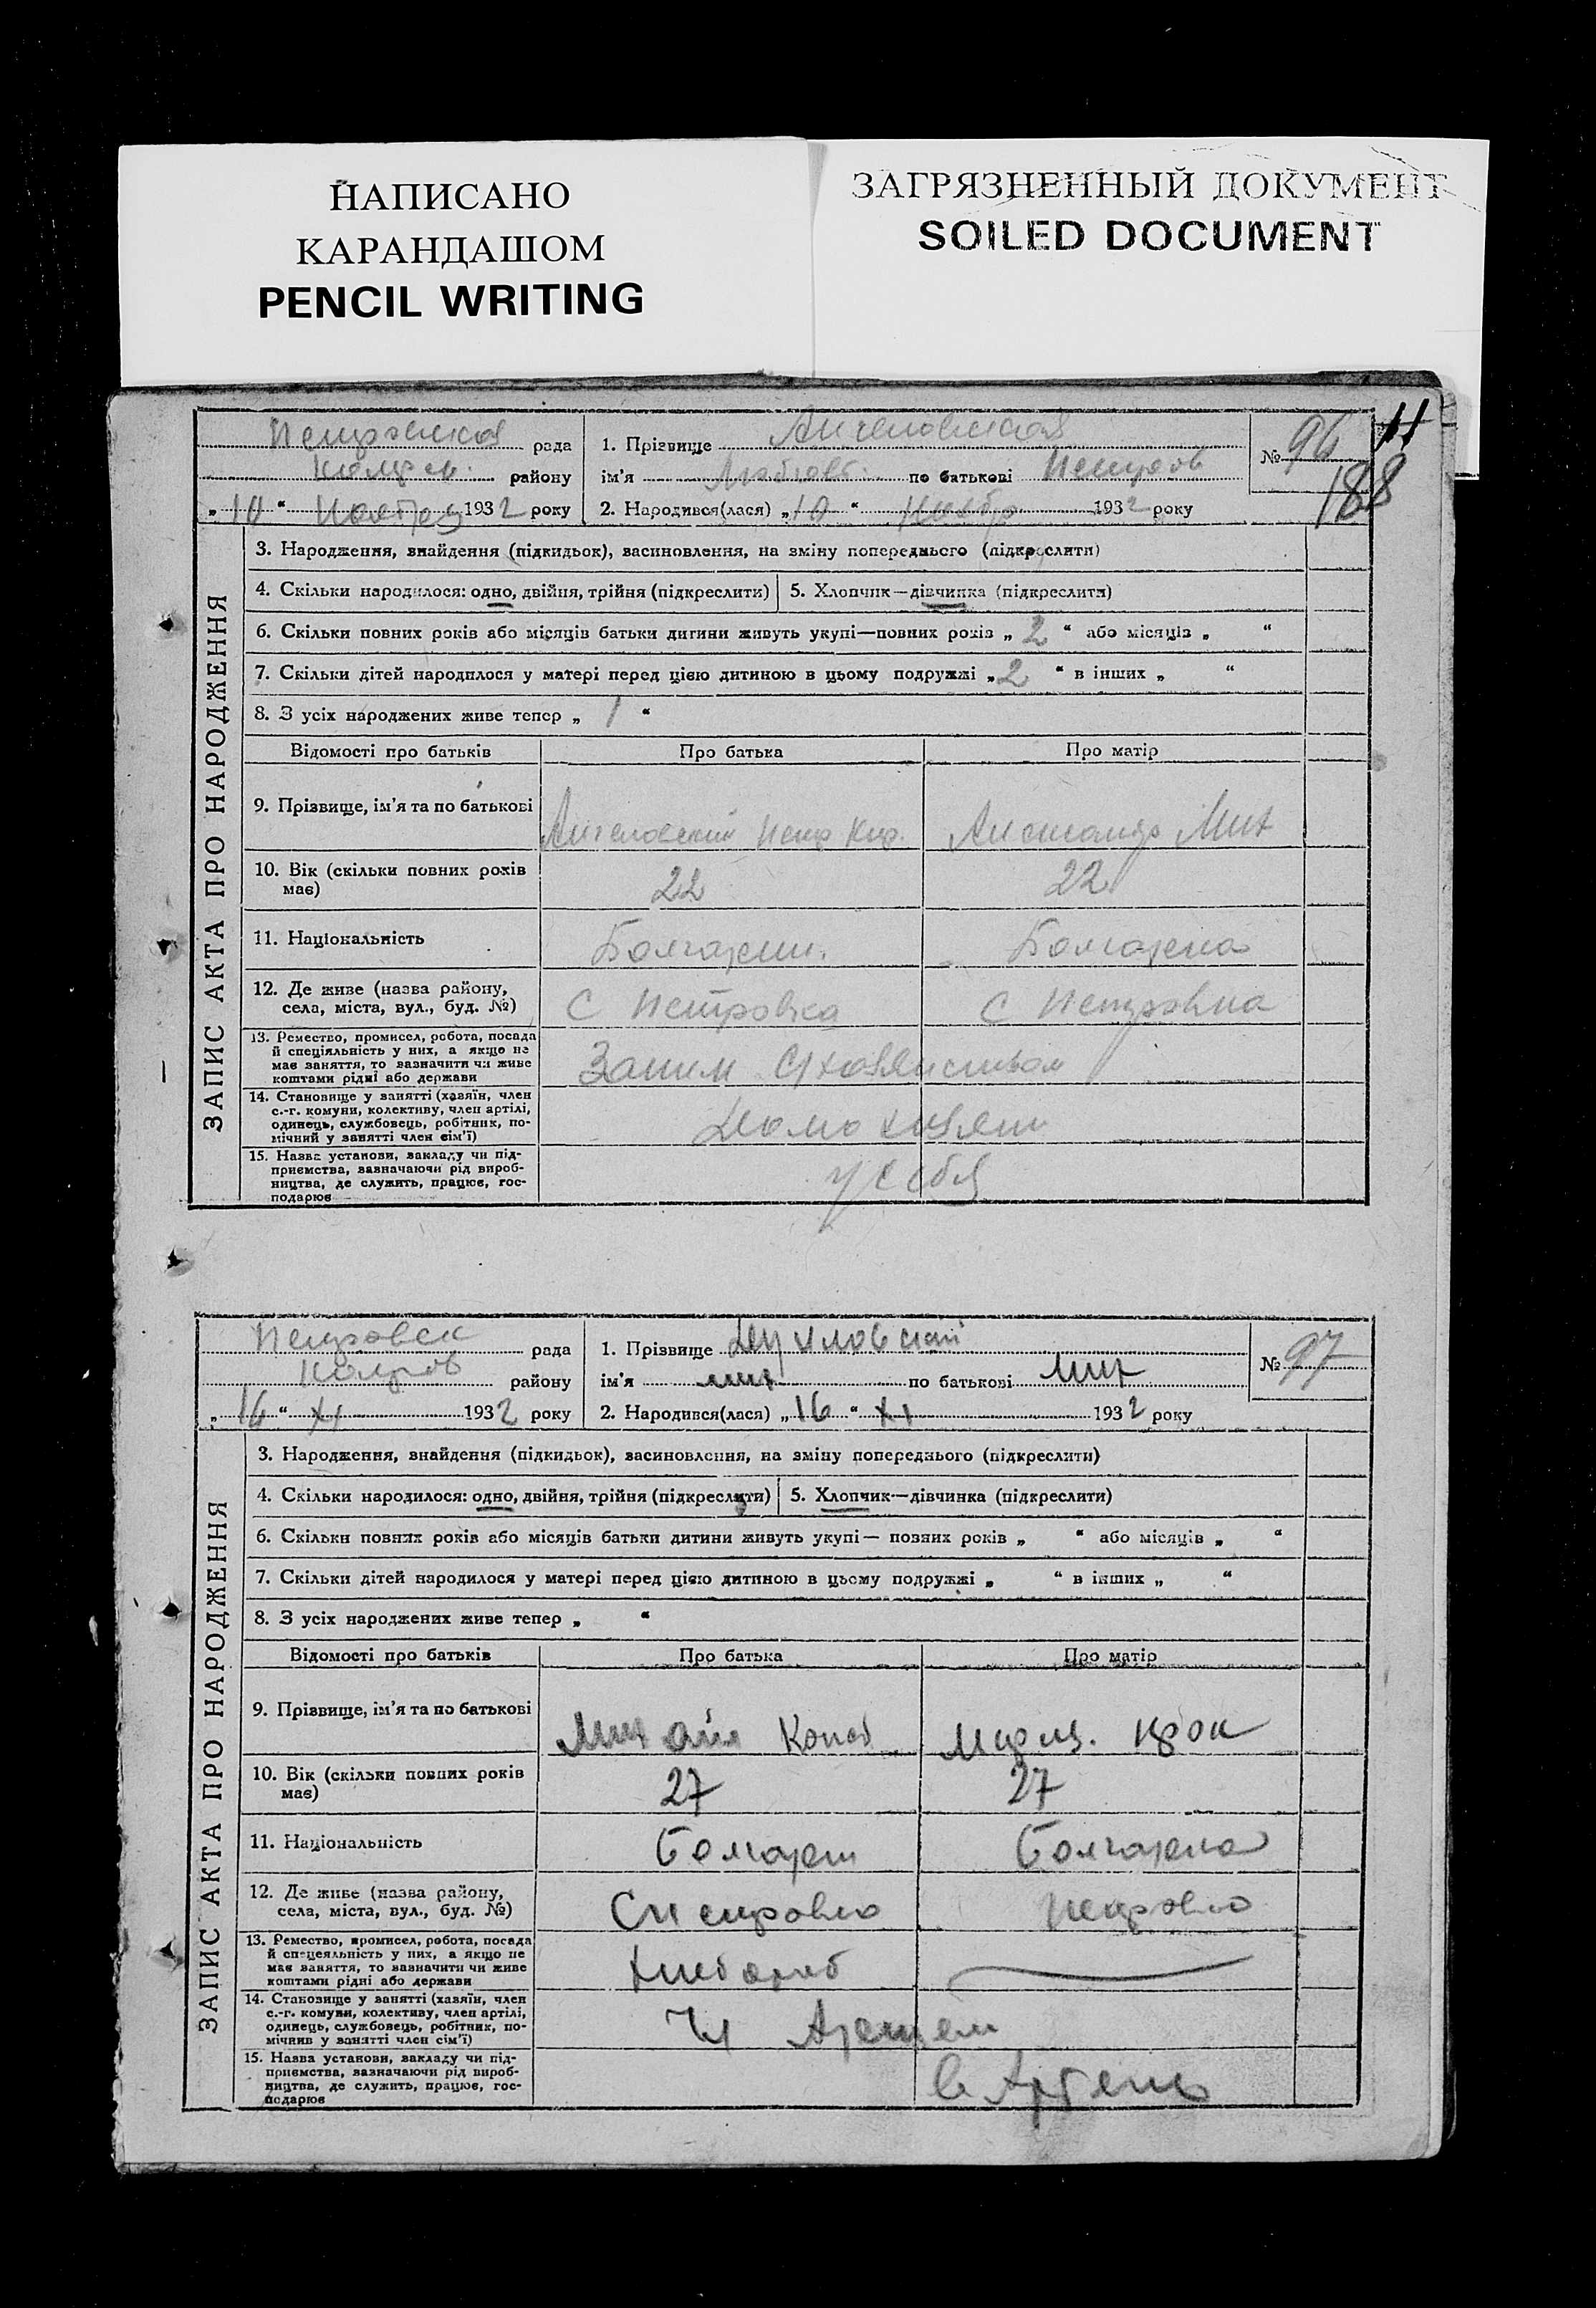 НАПИСАНО
КАРАНДАШОМ
PENCIL WRITING
ЗАГРЯЗНЕННЫЙ ДОКУМЕНТ
SOILED DOCUMENT
11
188
рада
району
„ 10 “ 1932 року
1. Прізвище Ангеловская
ім'я по батькові Петров
2. Народився(лася) „ 10 “ Ноябр 1932 року
№ 96
ЗАПИС АКТА ПРО НАРОДЖЕННЯ
3. Народження, знайдення (підкидьок), васиновлення, на зміну попереднього (підкреслити)
4. Скільки народилося: одно, двійня, трійня (підкреслити) 5. Хлопчик—дівчинка (підкреслити)
6. Скільки повних років або місяців батьки дитини живуть укупі—повних років „ 2 “ або місяців „ “
7. Скільки дітей народилося у матері перед цією дитиною в цьому подружжі „ 2 “ в інших „ “
8. З усіх народжених живе тепер „ 1 “
Відомості про батьків Про батька Про матір
9. Прізвище, ім'я та по батькові Ангеловский Петр Кир. Александр Мих
10. Вік (скільки повних років має) 22 22
11. Національність Болгарин. Болгарка
12. Де живе (назва району, села, міста, вул., буд. №) С Петровка С Петровка
13. Ремество, промисел, робота, посада й спеціяльність у них, а якщо не має заняття, то зазначити чи живе коштами рідні або держави
14. Становище у занятті (хазяїн, член с.-г. комуни, колективу, член артілі, одинець, службовець, робітник, помічний у занятті член сім'ї) Домохозяин
15. Назва установи, закладу чи підприємства, зазначаючи рід виробництва, де служить, працює, господарює у себя
Петровск рада
району
„ 16 “ XI 1932 року
1. Прізвище
ім'я мих по батькові Мих
2. Народився(лася) „ 16 “ XI 1932 року
№ 97
ЗАПИС АКТА ПРО НАРОДЖЕННЯ
3. Народження, знайдення (підкидьок), васиновлення, на зміну попереднього (підкреслити)
4. Скільки народилося: одно, двійня, трійня (підкреслити) 5. Хлопчик—дівчинка (підкреслити)
6. Скільки повних років або місяців батьки дитини живуть укупі— повних років „ “ або місяців „ “
7. Скільки дітей народилося у матері перед цією дитиною в цьому подружжі „ “ в інших „ “
8. З усіх народжених живе тепер „ “
Відомості про батьків Про батька Про матір
9. Прізвище, ім'я та по батькові
10. Вік (скільки повних років має) 27 27
11. Національність Болгарин Болгарка
12. Де живе (назва району, села, міста, вул., буд. №) С Петровка Петровка
13. Ремество, промисел, робота, посада й спецеяльність у них, а якщо не має заняття, то зазначити чи живе коштами рідні або держави Хлебораб
14. Становище у занятті (хазяїн, член с.-г. комуни, колективу, член артілі, одинець, службовець, робітник, помічнив у занятті член сім'ї) Чл
15. Назва установи, закладу чи підприємства, зазначаючи рід виробництва, де служить, працює, господарює в